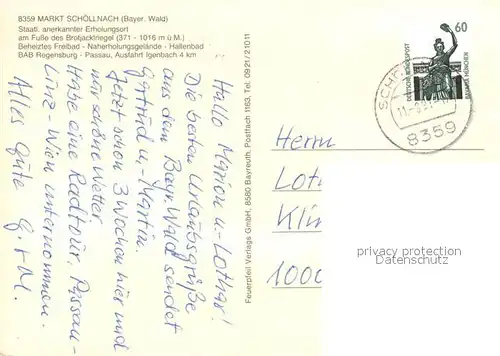 8359 MARKT SCHÖLLNACH (Bayer. Wald)
Staatl. anerkannter Erholungsort
am Fuße des Brotjacklriegel (371 - 1016 m ü.M.)
Beheiztes Freibad - Naherholungsgelände - Hallenbad
BAB Regensburg - Passau, Ausfahrt Igenbach 4 km
Hallo Marion u. Lothar!
Die besten Urlaubsgrüße
aus dem Bayr. Wald sendet
Gertrud u. Martin.
Jetzt schon 3 Wochen hier und
nur schöne Wetter.
Hose eine Radtour, Passau-
Linz-Wien unternommen.
Alles Gute
G.+M.
Feuerpfeil Verlags GmbH, 8580 Bayreuth, Postfach 1163, Tel. 0921/21011
60
DEUTSCHE BUNDESPOST
BAVARIA MÜNCHEN
8359
Herrn
Lot
Klin
1000
privacy protection
watermark